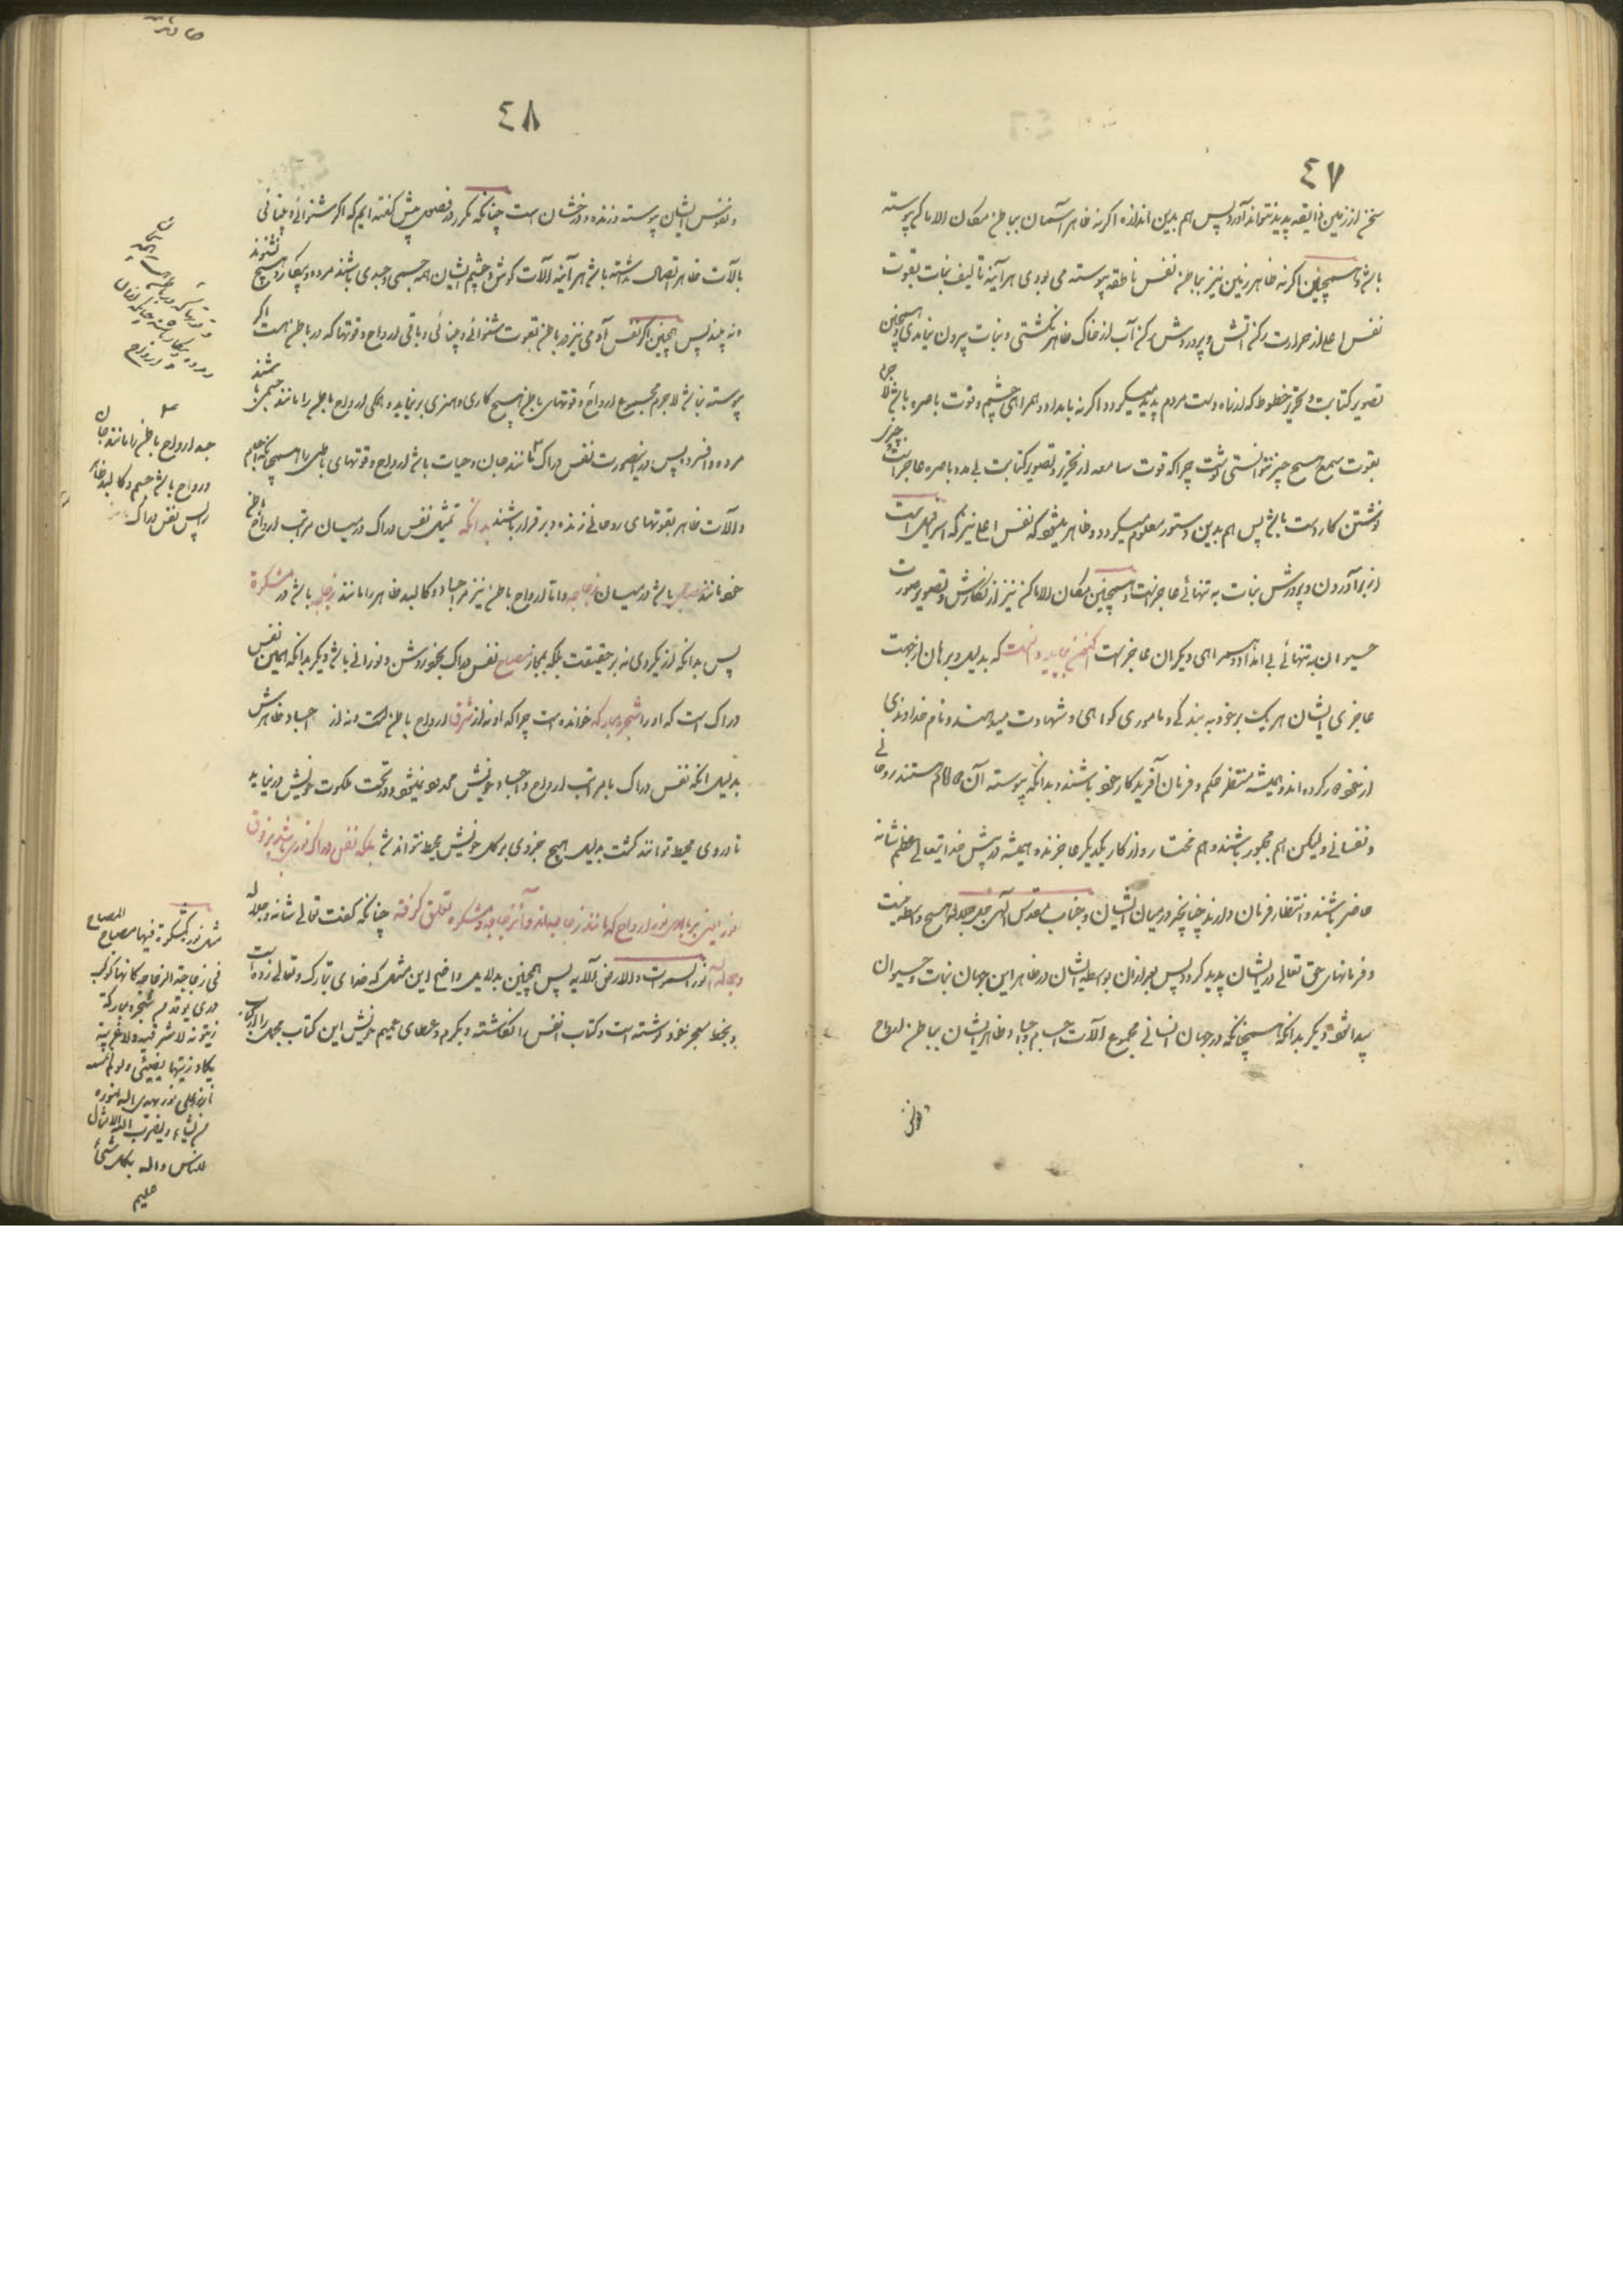 ٤٧
سخن از زمین ذایقه پدید نتواند آورد پس هم بدین اندازه اگر نه ظاهر آسمان بباطن مکان الاماکن پیوسته
باشد و همچنین اگر نه ظاهر زمین نیز بباطن نفس ناطقه پیوسته می بودی هر آینه تألیف نبات بقوت
نفس اعلی از حرارت رکن آتش و پرورش رکن آب از خاک ظاهر نگشتی و نبات بیرون نیامدی و همچنین
تصویر کتابت و تحریر خطوط که از راه دست مردم پدید میگردد اگر نه بامداد و همراهی چشم و قوت باصره باشد لا جرم
بقوت سمع هیچ چیز نتوانستی نوشت چرا که قوت سامعه از تحریر و تصویر کتابت بی مدد باصره عاجز است
نوشتن کار دست باشد پس هم بدین دستور معلوم میگردد و ظاهر میشود که نفس اعلی نیز که اسرافیل است
از برآوردن و پرورش نبات به تنهائی عاجز است و همچنین مکان الاماکن نیز از نگارش و تصویر صورت
حیوان به تنهائی بی امداد و همراهی دیگران عاجز است که بدلیل و برهان از جهت
عاجزی ایشان هر یک بر خود به بندگی و ماموری گواهی و شهادت میدهند و نام خداوندی
از خود دور کرده اند و همیشه منتظر حکم و فرمان آفریدگار خود باشند و بدانکه پیوسته آن هستند روحانی
و نفسانی و لیکن هم مجبور باشند و هم مختار و از کار یکدیگر عاجزند و همیشه در پیش خدایتعالی عظم شانه
حاضر باشند و انتظار فرمان دارند چنانچه در میان ایشان و جناب مقدس الهی جل جلاله هیچ واسطه نیست
و فرمانهای حق تعالی در ایشان پدید گردد پس بعد از آن بواسطه ایشان در ظاهر این جهان نبات و حیوان
پیدا شود دیگر بدانکه همچنانکه در جهان انسانی مجموع آلات اجسام و اجساد ظاهر ایشان بباطن ارواح
و نفوس
٤٨
و نفوس ایشان پیوسته و زنده و درخشان است چنانکه مکرر در فصول پیش گفته ایم که اگر شنوائی و بینائی
بآلات ظاهر اتصال نداشته باشد هر آینه آلات گوش و چشم ایشان همه جسمی و جسدی باشند مرده و بیکار و هیچ نشنوند
و نه بینند پس همچنین اگر نفس آدمی نیز در باطن بقوت شنوائی و بینائی و باقی ارواح و قوتها که در باطن است اگر
پیوسته نباشد لا جرم مجموع ارواح و قوتهای باطن هیچ کاری و هنری بر نیاید و همگی ارواح باطن را مانند جسمی باشند
مرده و افسرده پس در اینصورت نفس دراک مانند جان و حیات باشد ارواح و قوتهای باطن را همچنانکه اجسام
و آلات ظاهر بقوتهای روحانی زنده و برقرار باشند بدانکه تمثیل نفس دراک در میان مراتب ارواح باطن
خود مانند مصباح باشد در میان زجاجه و اما ارواح باطن نیز در اجساد و کالبد ظاهر را مانند زجاجه باشد در مشکوة
پس بدانکه از یکروی نه بر حقیقت بلکه بمجاز مصباح نفس دراک بخود روشن و نورانی باشد دیگر بدانکه همین نفس
دراک است که او را شجره مبارکه خوانده است چرا که او نه از شرق ارواح باطن است و نه از اجساد ظاهرش
بدلیل آنکه نفس دراک بامراتب ارواح و اجساد خویش محدود نیشود و در تحت ملکوت خویش در نیاید
تا در وی محیط توانند گشت بدلیل هیچ جزوی بر کل خویش محیط نتواند شد بلکه نفس دراک نوری باشد بر فوق
نور یعنی بر بالای نور ارواح که مانند زجاجه اند و آن زجاجه و مشکوة تعلق گرفته چنانکه گفت تعالی شانه و جلاله
و جماله نور السموات و الارض الآیه پس همچنین بدلایل واضح این مثل که خدای تبارک و تعالی زده است
و بخط سحر خود نوشته است و کتاب انفس را نگاشته و بکرم و عطای عمیم خویش این کتاب مجمل را
جمله ارواح باطن را مانند جان
و ارواح باشد جسم و کالبد ظاهر
پس نفس دراک
مثل نوره کمشکوة فیها مصباح المصباح
فی زجاجة الزجاجة کانها کوکب
دری یوقد من شجرة مبارکة
زیتونة لا شرقیة و لا غربیة
یکاد زیتها یضیئ و لو لم تمسسه
نار نور علی نور یهدی الله لنوره
من یشاء و یضرب الله الامثال
للناس و الله بکل شیئ
علیم